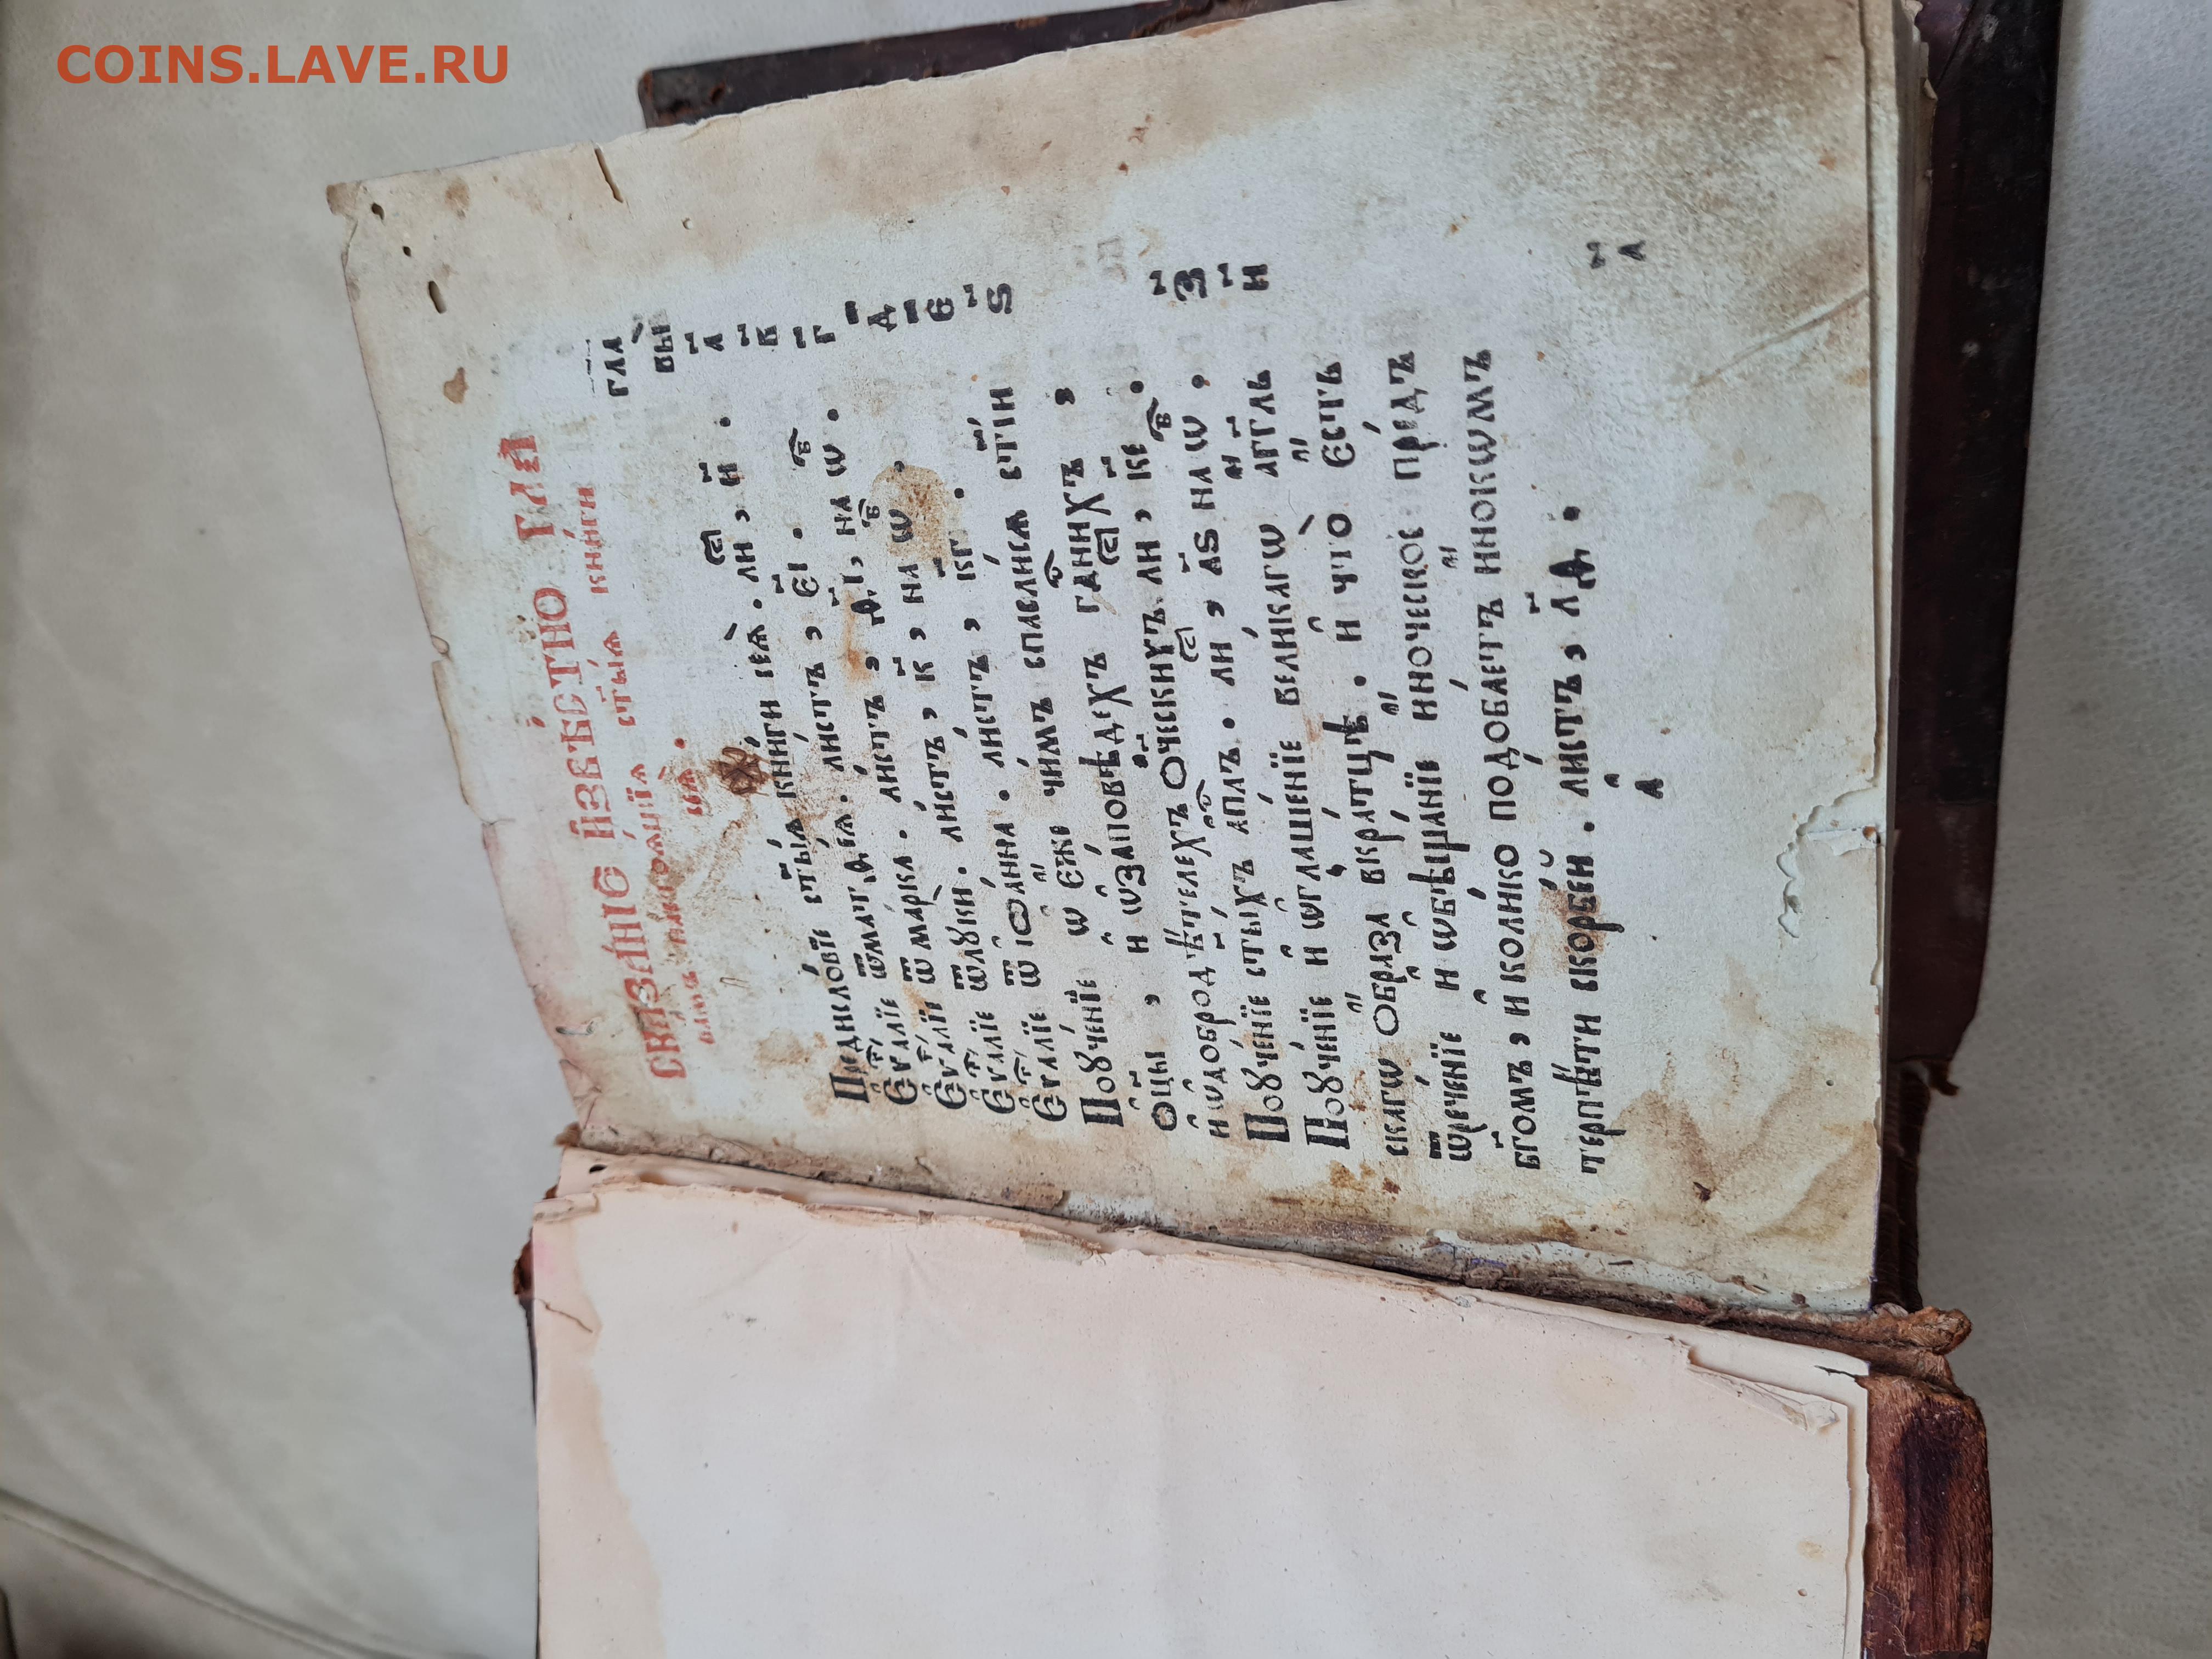 COINS.LAVE.RU
СКАЗА́НІЕ И҆ЗВѢ́СТНО ГЛА
ст҃ы́ѧ кни́ги
сеѧ̀.
гла
вы̀
Предисло́вїе ст҃ы́ѧ кни́ги сеѧ̀. ли, н҃. а҃
ѿ матѳе́ѧ. ли́стъ, є҃і. в҃
Є҆ѵа́лїе ѿ ма́рка. ли́стъ, на ѡ҆. г҃
Є҆ѵа́лїе ѿ лꙋкѝ. ли́стъ, к҃, на ѡ҆. д҃
Є҆ѵа́лїе ѿ і҆ѡа́нна. ли́стъ, кг҃. є҃
Поꙋче́нїе ѡ҆ є҆́же чи́мъ спасли́сѧ ст҃і́и ѕ҃
ѻ҆ц҃ы̀, и҆ ѡ҆ за́повѣдехъ гдⷭ҇нихъ,
и҆ ѡ҆ доброд ѣ́телехъ ѻ҆ч҃ескихъ. ли, ке҃. з҃
Поꙋче́нїе ст҃ы́хъ ап҃лъ. ли, лѕ҃ на ѡ҆. и҃
Поꙋче́нїе и҆ ѡ҆глаше́нїе вели́кагѡ а҆́гг҃ль
скагѡ ѻ҆́браза вкра́тцѣ. и҆ что̀ є҆́сть
ѿрече́нїе и҆ ѡ҆бѣща́нїе и҆́ноческое пре́дъ
бг҃омъ, и҆ коли́ко подоба́етъ и҆́нокѡмъ
терпѣ́ти скорбе́й. ли́стъ, лд҃. л҃
а҆